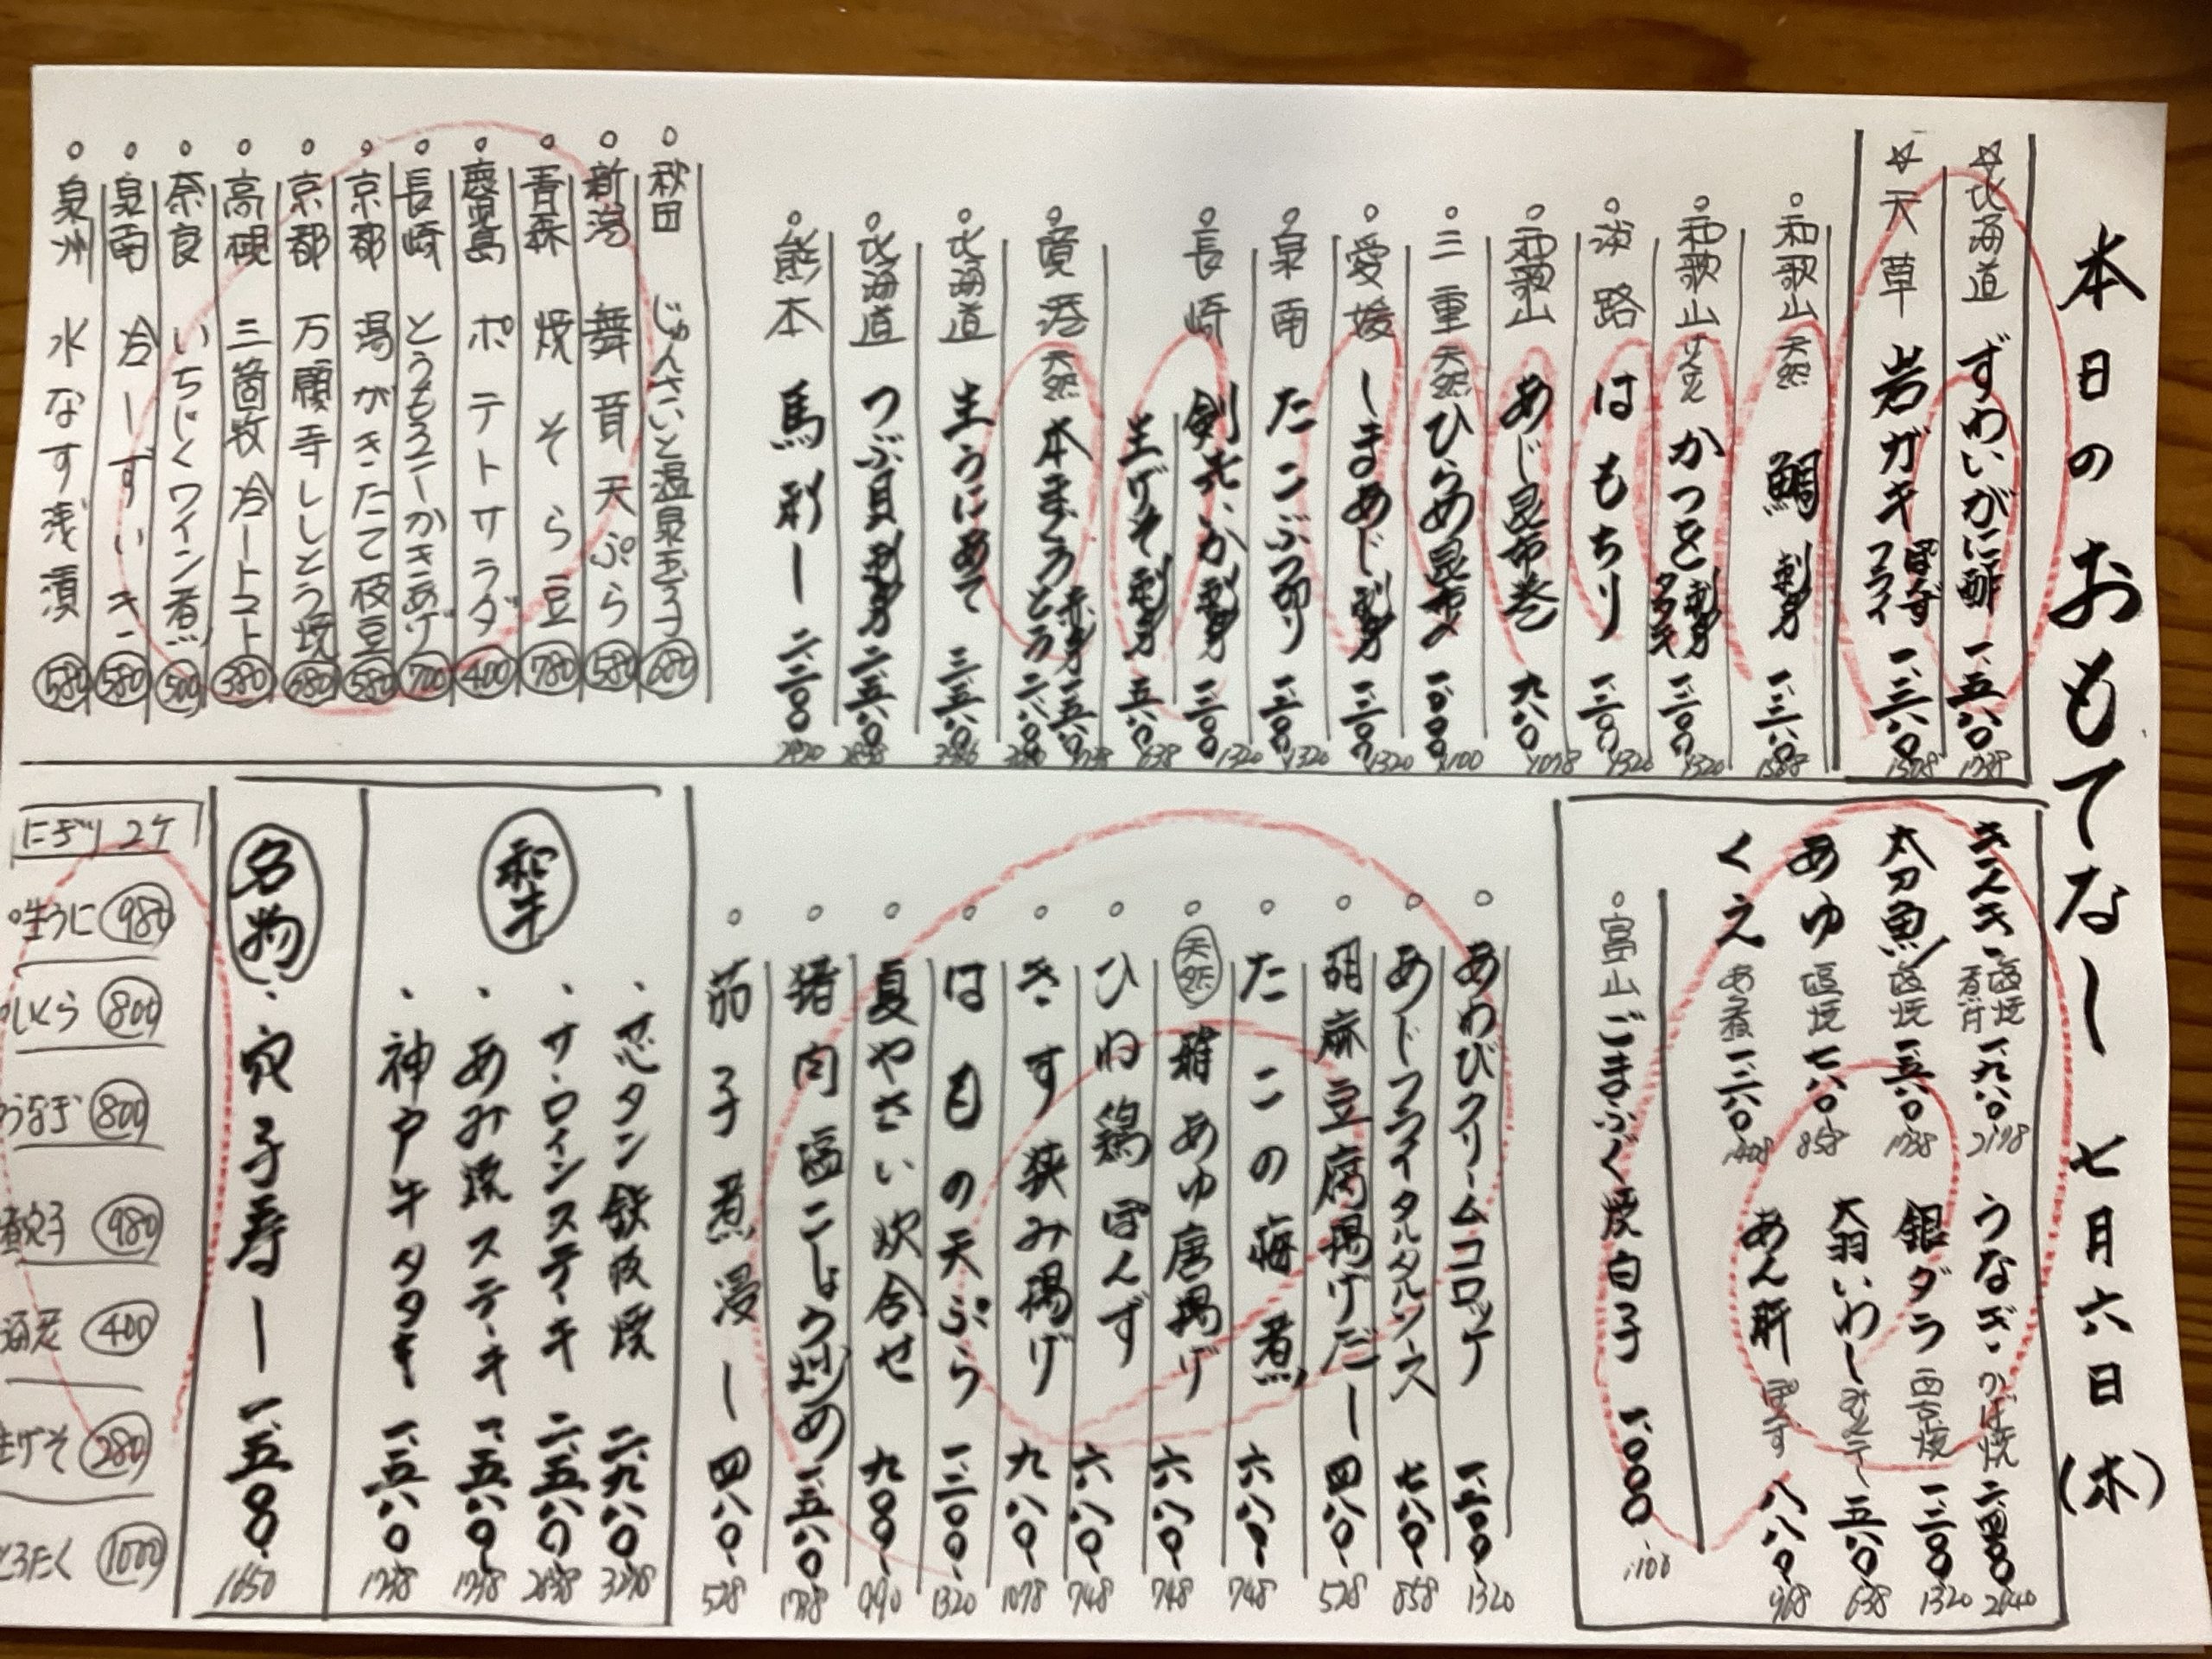 本日のおもてなし 七月六日(木)
☆北海道 ずわいがに酢 一、五八〇 1738
☆天草 岩ガキ ぽんず フライ 一、三八〇
。和歌山 天然 鯛 刺身 一、三八〇
。和歌山 かつを 刺身 タタキ 一、二〇〇 1320
。淡路 はもちり 一、二〇〇 1320
。和歌山 あじ昆布巻 九八〇 1078
。三重 天然 ひらめ昆布〆 一、〇〇〇 1100
。愛媛 しまあじ 刺身 一、二〇〇 1320
。泉南 たこぶつ切り 一、二〇〇 1320
。長崎 剣先いか 刺身 一、二〇〇 1320
生げそ 刺身 五八〇 638
。天然 本まぐろ 赤身 一、五八〇 1738 とろ
。北海道 生うにあて
。北海道 つぶ貝 刺身 二、五八〇 2838
。熊本 馬刺し 二、二〇〇
。秋田 じゅんさいと温泉玉子 680
。新潟 舞茸天ぷら 580
。青森 焼そら豆 780
。鹿児島 ポテトサラダ 400
。長崎 とうもろこしかきあげ 700
。京都 湯がきたて枝豆 580
。京都 万願寺ししとう焼 680
。高槻 三箇牧 冷しトマト 380
。奈良 いちじくワイン煮 500
。泉南 冷しずいき 580
。泉州 水なす浅漬 580
きんき 塩焼 煮付 一、九八〇 2178
太刀魚 塩焼 一、五八〇 1738
あゆ 塩焼 七八〇 858
くえ あら煮 一、二八〇 1408
うなぎ かば焼 二、四〇〇 2640
銀ダラ 西京焼 一、二〇〇 1320
大羽いわし 五八〇 638
あん肝 ぽんず 八八〇 968
。富山 ごまふぐ焼白子 一、〇〇〇 1100
。あわびクリームコロッケ 一、二〇〇 1320
。あじフライタルタルソース 七八〇 858
。胡麻豆腐揚げだし 四八〇 528
。たこの梅煮 六八〇 748
。天然 稚あゆ唐揚げ 六八〇 748
。ひね鶏ぽんず 六八〇 748
。きす挟み揚げ 九八〇 1078
。はもの天ぷら 一、二〇〇 1320
。夏やさい炊合せ 九〇〇 990
。猪肉塩こしょう炒め 一、五八〇 1738
。茄子煮浸し 四八〇 528
和牛
・芯タン鉄板焼 二、九八〇 3278
・サーロインステーキ 二、五八〇 2838
・あみ焼ステーキ 一、五八〇 1738
・神戸牛タタキ 一、五八〇 1738
名物
・穴子寿し 一、五〇〇 1650
にぎり 2ケ
。生うに 980
いくら 800
うなぎ 800
煮穴子 980
海老 400
生げそ 280
とろたく 1000